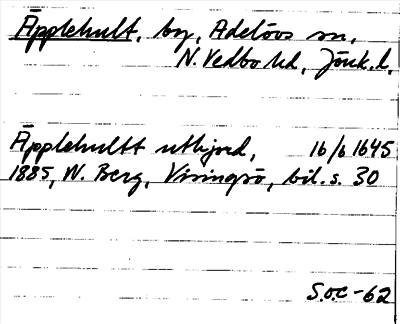 Äpplehult, by, Adelövs sn,
N. Vedbo hd, Jönk. l.
Äpplehultt uthjord, 16/6 1645
1885, W. Berg, Visingsö, bil. s. 30
S.O.C-62